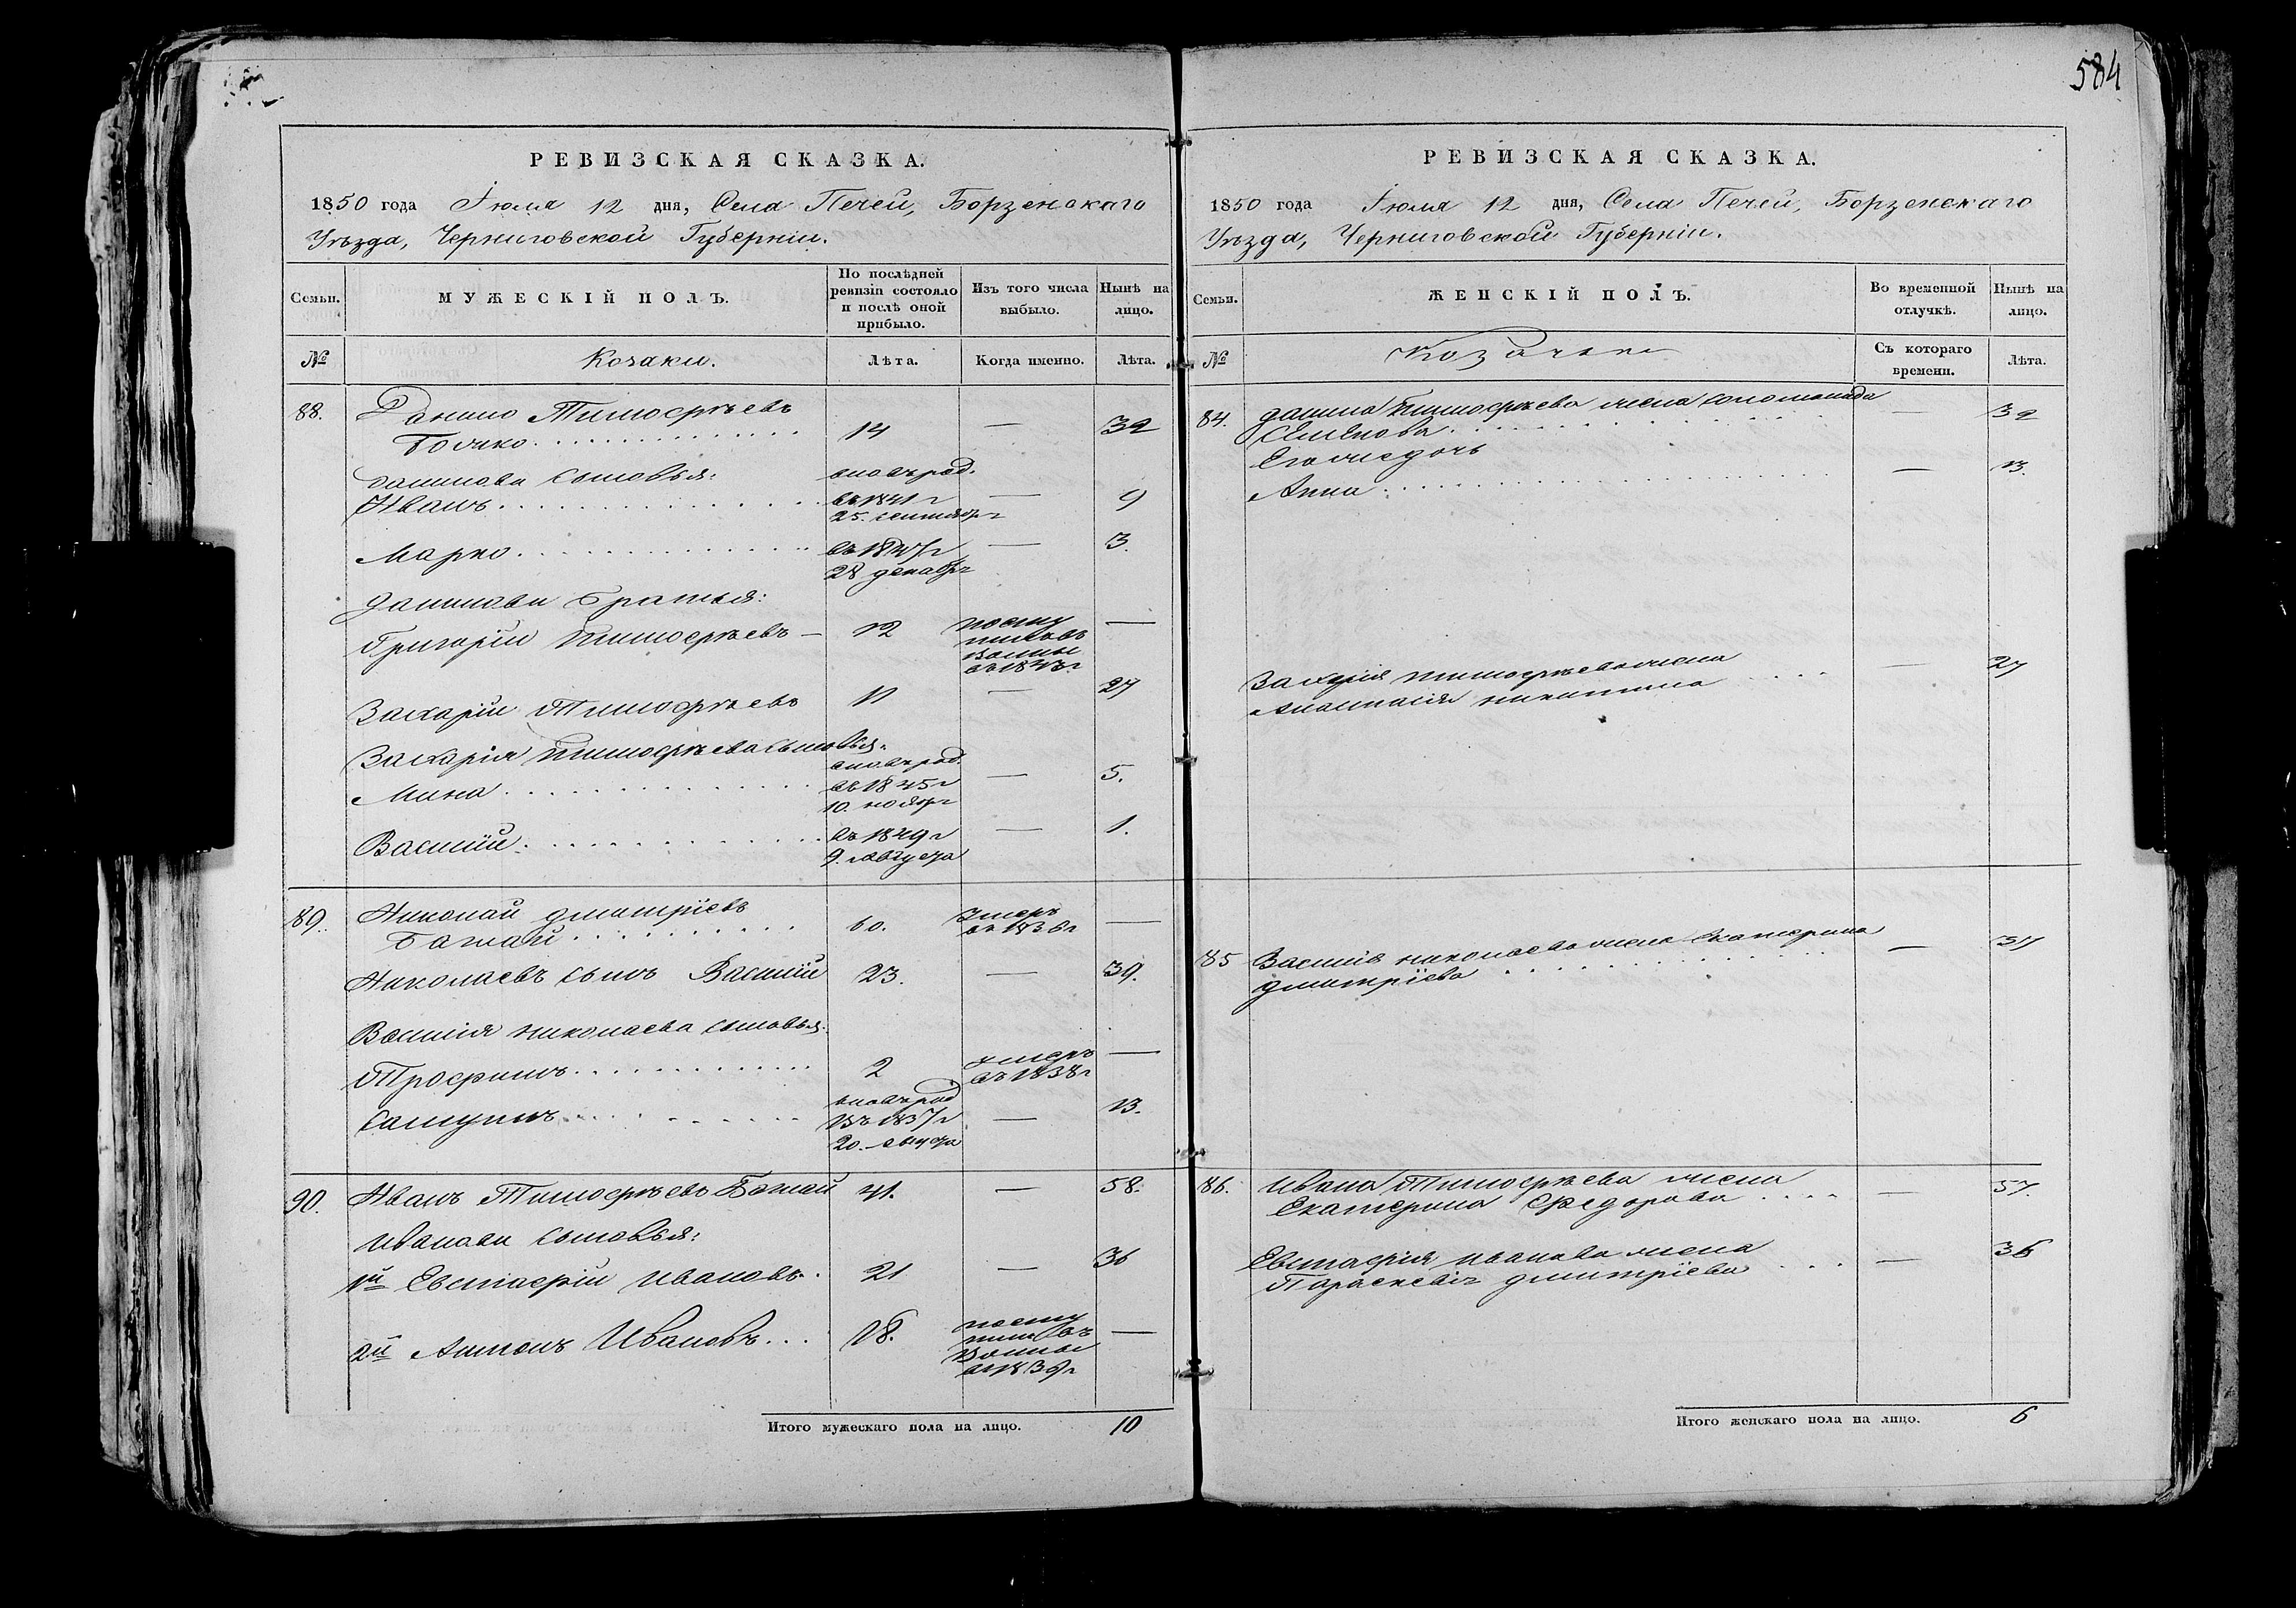 584
РЕВИЗСКАЯ СКАЗКА.
1850 года Іюля 12 дня, Села Печей, Борзенскаго
Уѣзда, Черниговской Губерніи.
Семьи.
МУЖЕСКІЙ ПОЛЪ.
По послѣдней ревизіи состояло и послѣ оной прибыло.
Изъ того числа выбыло.
Нынѣ на лицо.
№
Козаки.
Лѣта.
Когда именно.
Лѣта.
88. Данило Тимофѣевъ
14 — 32
Даниловы сыновья: вновь род.
Иванъ въ 1841 г — 9
25. сентябр
Марко въ 1847 г — 3.
28 декабр
Даниловы братья:
Григорій Тимофѣевъ — 12 посту
пилъ въ
въ 1843 г. —
Захарій Тимофѣевъ 11 — 27
Захарія Тимофѣева сыновья:
вновь род.
Мина въ 1845 г — 5.
10. ноябр
Василій въ 1849 г — 1.
9. августа
89. Николай Дмитріевъ
Бажай 60. умеръ въ 1836 г —
Николаевъ сынъ Василій 23. — 39.
Василія Николаева сыновья:
Трофимъ 2 умеръ
въ 1838 г —
вновь род
Самуилъ въ 1837 г — 13.
20. августа
90. Иванъ Тимофѣевъ Бажай 41. — 58.
Ивановы сыновья:
1й Евстафій Ивановъ 21 — 36
2й Антонъ Ивановъ 18. посту
пилъ въ
въ 1839 г —
Итого мужескаго пола на лицо. 10
РЕВИЗСКАЯ СКАЗКА.
1850 года Іюля 12 дня, Села Печей, Борзенскаго
Уѣзда, Черниговской Губерніи.
Семьи.
ЖЕНСКІЙ ПОЛЪ.
Во временной отлучкѣ.
Нынѣ на лицо.
№
Козачьяго
Съ котораго времени.
Лѣта.
84. Данила Тимофѣева жена
Семенова — 32
Его же дочь
Анна — 13.
Захарія Тимофѣева жена
Анастасія Никитина — 27
85 Василія Николаева жена Екатерина
Дмитріева — 37
86. Ивана Тимофѣева жена
Екатерина Федорова — 57.
Евстафія Иванова жена
Параскевія Дмитріева — 36
Итого женскаго пола на лицо. 6